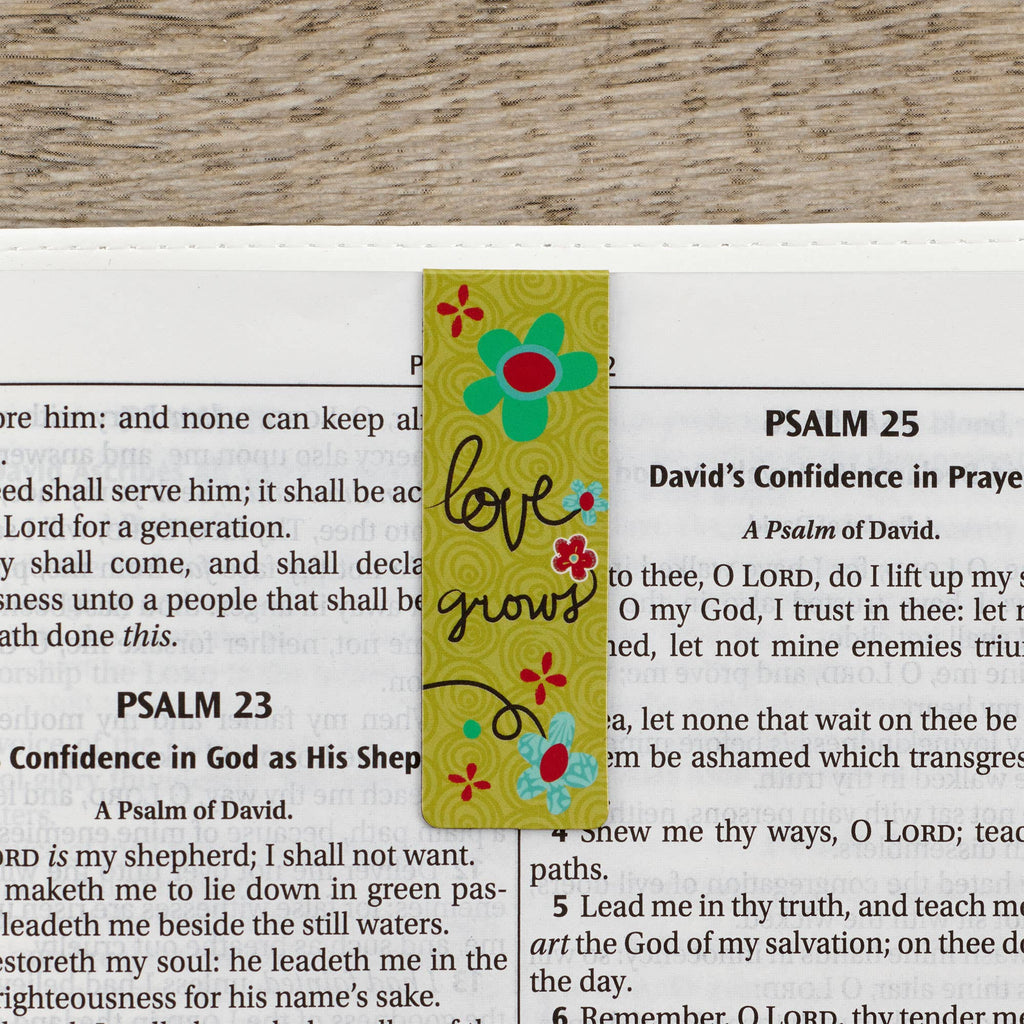 2
ore him: and none can keep
.
shall serve him; it shall be
for a generation.
shall come, and shall
unto a people that shall be
done this.
PSALM 23
Confidence in God as His
A Psalm of David.
is my shepherd; I shall not want.
maketh me to lie down in green pas-
leadeth me beside the still waters.
my soul: he leadeth me in the
righteousness for his name's sake.
love
grows
PSALM 25
David's Confidence in
A Psalm of David.
to thee, O LORD, do I lift up my
O my God, I trust in thee: let
let not mine enemies
let none that wait on thee be
be ashamed which
4 Shew me thy ways, O LORD;
paths.
5 Lead me in thy truth, and teach
art the God of my salvation; on thee
the day.
6 Remember, O LORD, thy tender